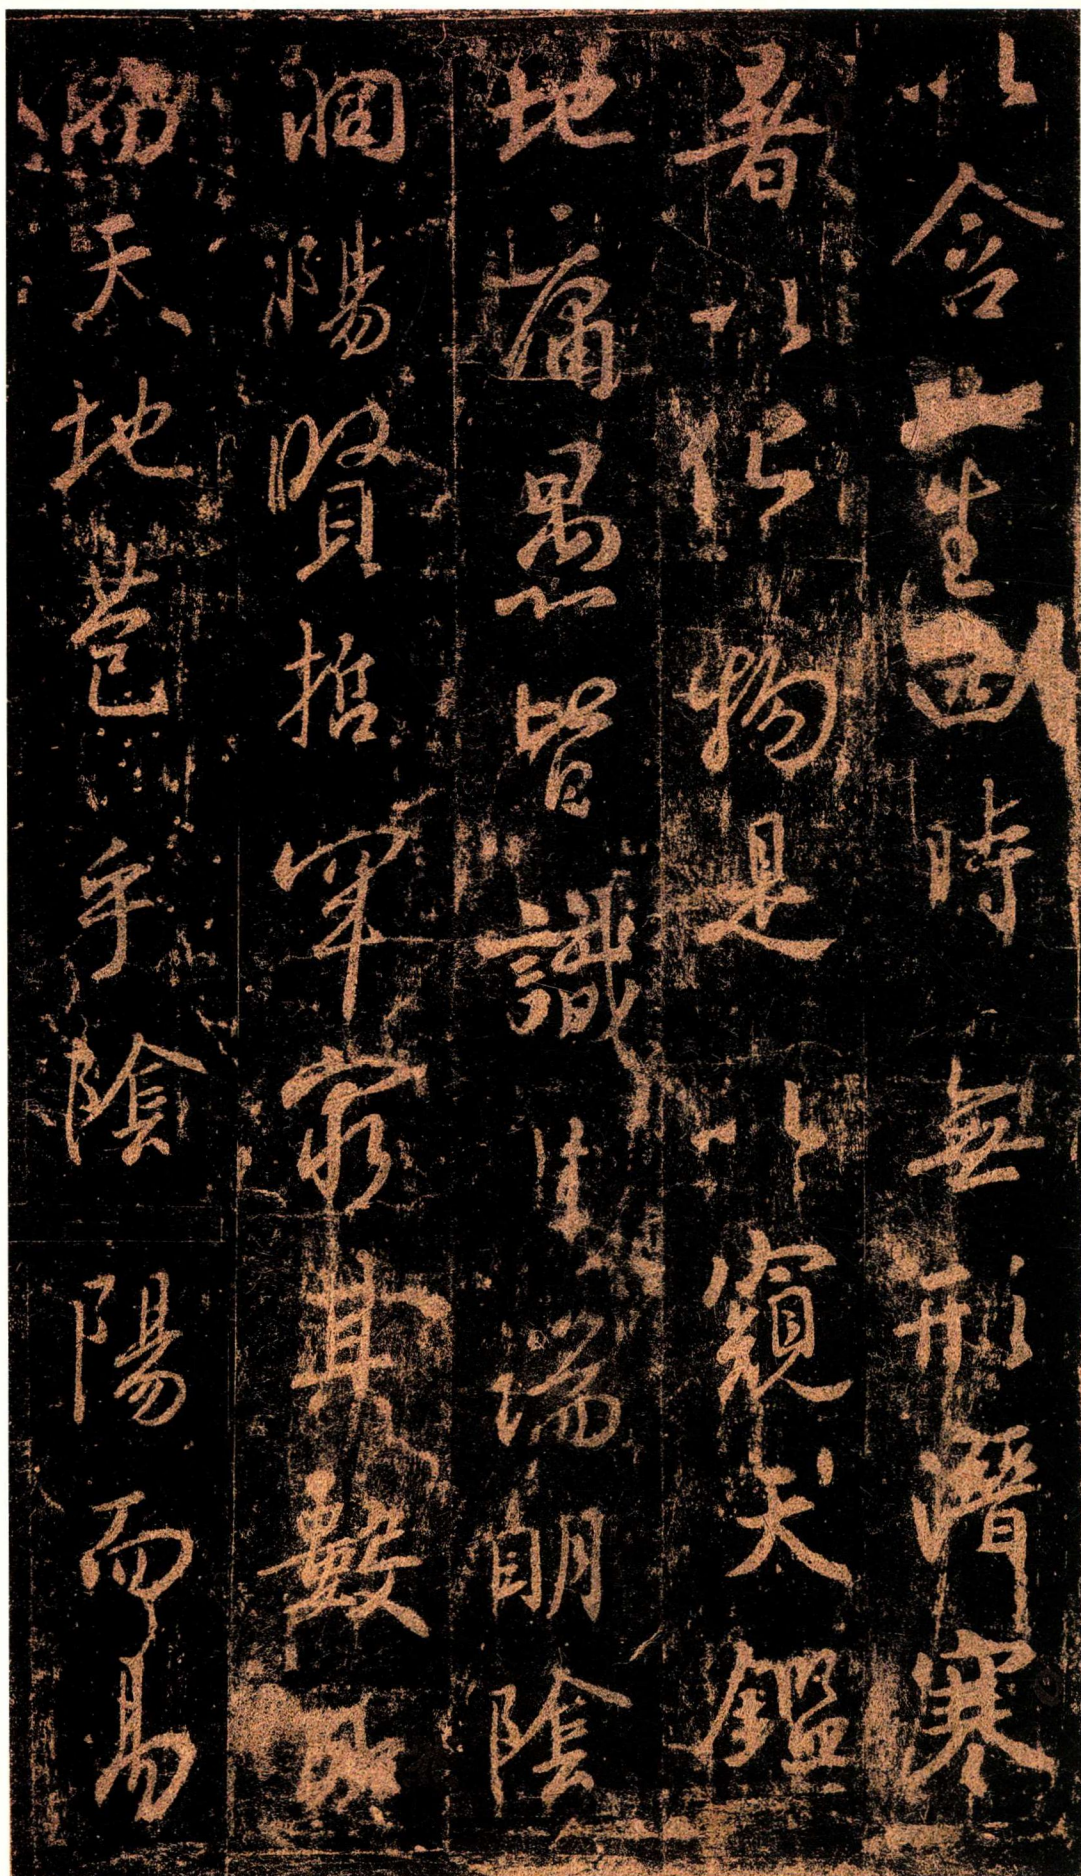 以含生四時無形潛寒
暑以化物是以窺天鑑
地庸愚皆識其端明陰
洞陽賢哲罕窮其數
而天地苞乎陰陽而易